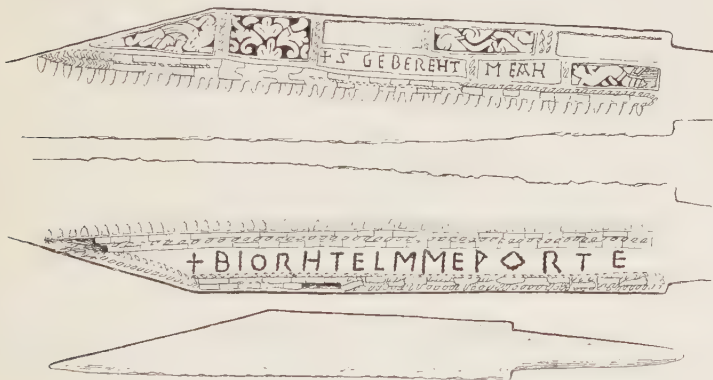 +S GEBEREHT MEAH
+BIORHTELMMEǷORTE